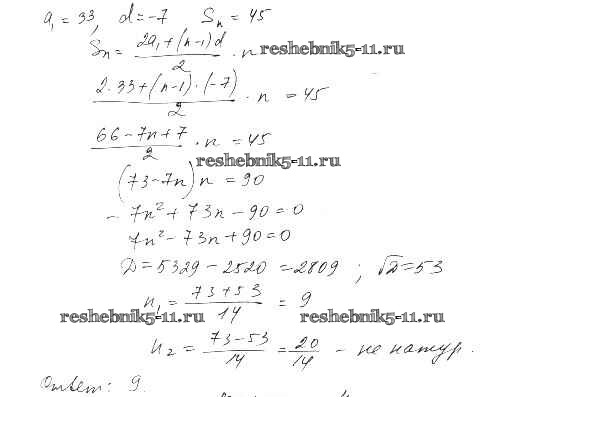 a₁ = 33, d = -7 Sₙ = 45
Sₙ = (2a₁ + (n-1)d)/2 · n reshebnik5-11.ru
(2·33 + (n-1)·(-7))/2 · n = 45
(66 - 7n + 7)/2 · n = 45
reshebnik5-11.ru
(73 - 7n) n = 90
- 7n² + 73n - 90 = 0
7n² - 73n + 90 = 0
D = 5329 - 2520 = 2809 ; √D = 53
n₁ = (73 + 53)/14 = 9
reshebnik5-11.ru reshebnik5-11.ru
n₂ = (73 - 53)/14 = 20/14 - не натур.
Ответ: 9.